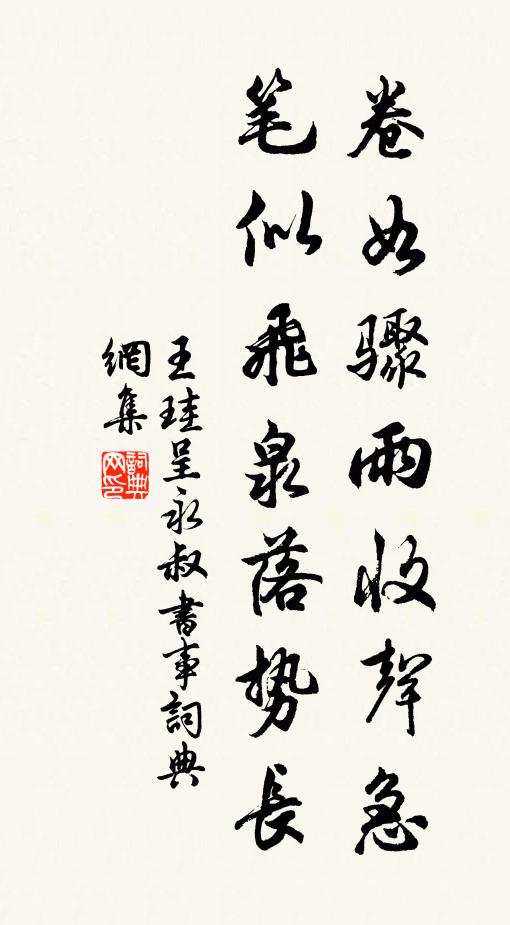 卷如骤雨收聲急
笔似飛泉落势長
王珪呈永叔書事詞典
網集
詞典网印